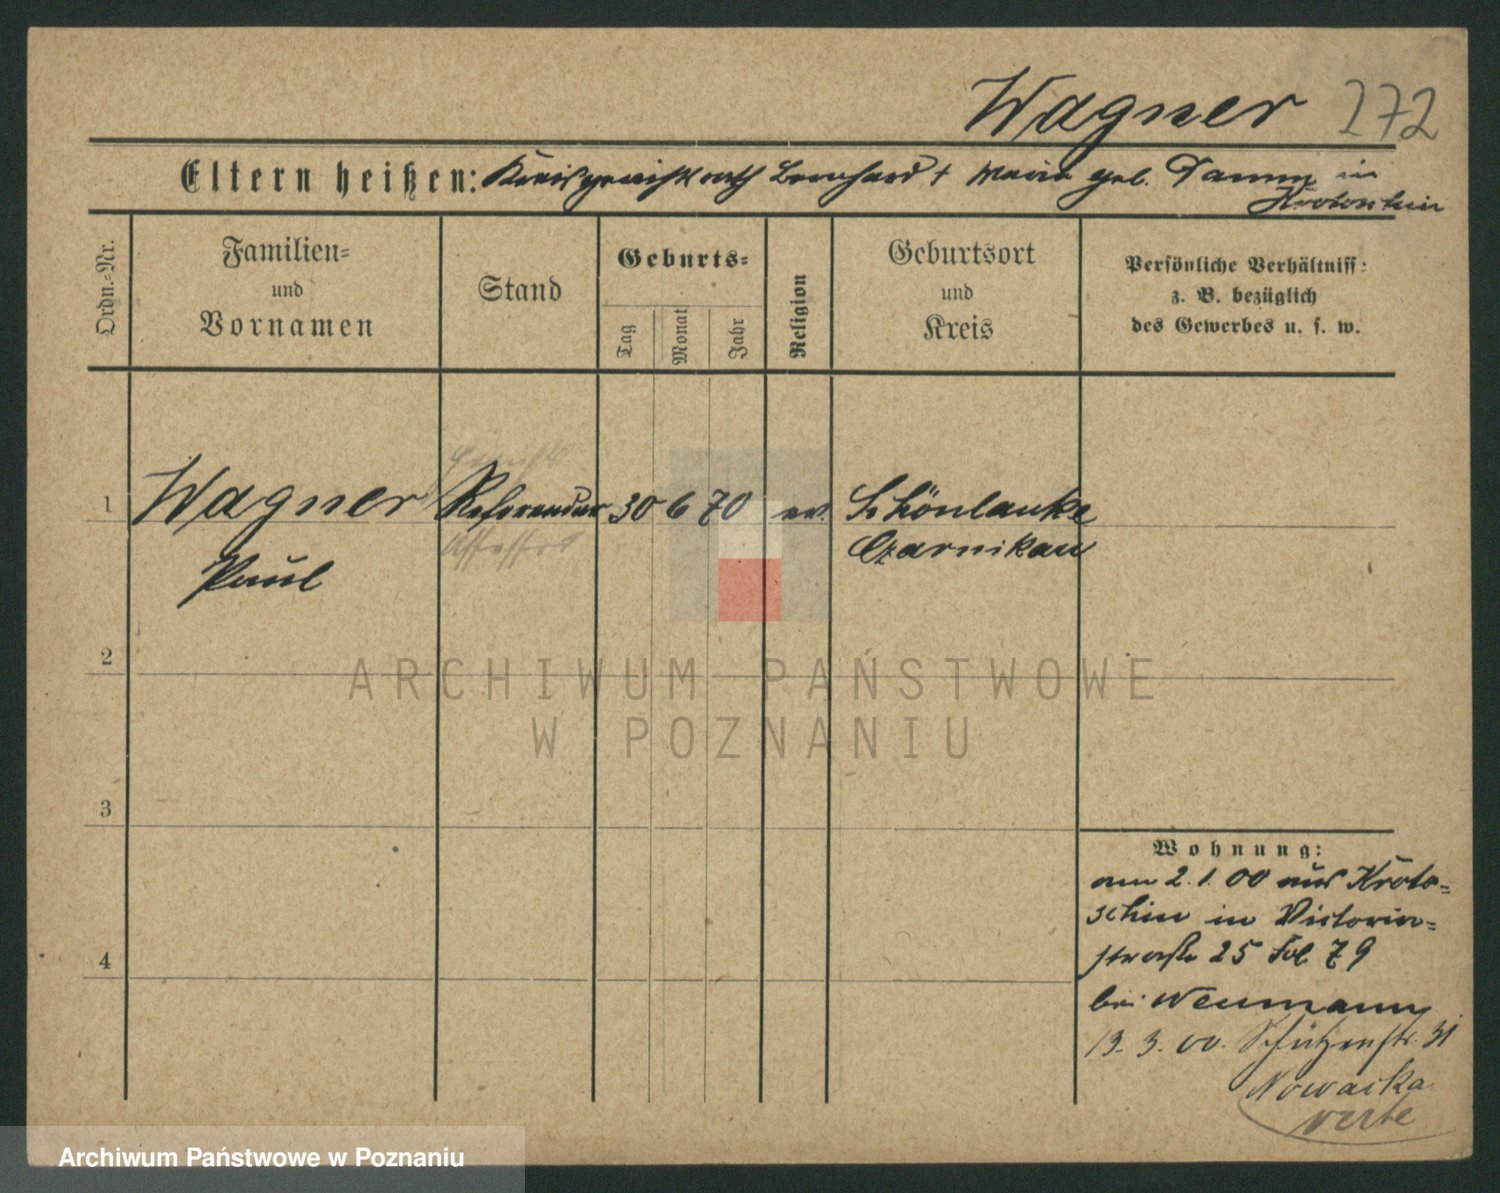 Wagner 272
Eltern heißen: Kreisgerichtsrath Bernhard + Marie geb. Damm in
Krotoschin
Ordn.-Nr.
Familien-
und
Vornamen
Stand
Geburts-
Tag
Monat
Jahr
Religion
Geburtsort
und
Kreis
Persönliche Verhältniss:
z. B. bezüglich
des Gewerbes u. s. w.
Gerichts
1 Wagner Referendar 30 6 70 ev. Schönlanke
Assessor Czarnikau
Paul
2
ARCHIWUM PAŃSTWOWE
W POZNANIU
3
Wohnung:
am 2.1.00 aus Kroto-
schin in Victoria-
straße 25 Fol 79
bei Neumann
4
13.3.00. Schützenstr. 31
Nowacka
verte
Archiwum Państwowe w Poznaniu